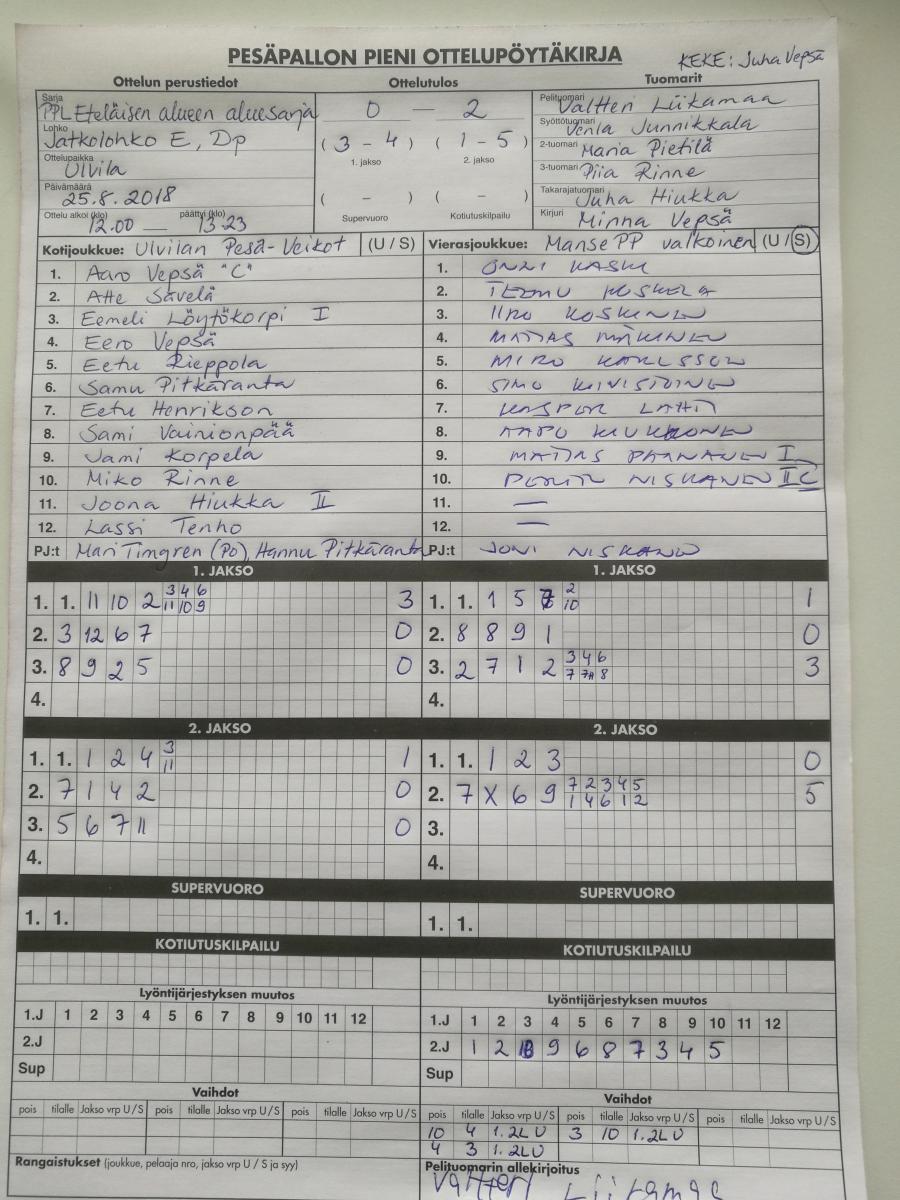 PESÄPALLON PIENI OTTELUPÖYTÄKIRJA
KEKE: Juha Vepsä
Ottelun perustiedot Ottelutulos Tuomarit
Sarja
PPL Eteläisen alueen aluesarja
Lohko
Jatkolohko E, Dp
Ottelupaikka
Ulvila
Päivämäärä
25.8.2018
Ottelu alkoi (klo) päättyi (klo)
12.00 — 13.23
0 — 2
( 3 - 4 ) ( 1 - 5 )
1. jakso 2. jakso
( - ) ( - )
Supervuoro Kotiutuskilpailu
Pelituomari Valtteri Liikamaa
Syöttötuomari Venla Junnikkala
2-tuomari Maria Pietilä
3-tuomari Piia Rinne
Takarajatuomari Juha Hiukka
Kirjuri Minna Vepsä
Kotijoukkue: Ulvilan Pesä-Veikot (U / S)
1. Aaro Vepsä "C"
2. Atte Savelä
3. Eemeli Löytökorpi I
4. Eero Vepsä
5. Eetu Rieppola
6. Samu Pitkäranta
7. Eetu Henrikson
8. Sami Vainionpää
9. Jami Korpela
10. Miko Rinne
11. Joona Hiukka II
12. Lassi Tenho
PJ:t Mari Timgren (Po), Hannu Pitkäranta
Vierasjoukkue: Manse PP valkoinen (U / S)
1. ONNI KASKI
2. TEEMU KOSKELA
3. IIRO KOSKINEN
4. MATIAS MÄKINEN
5. MIRO KARLSSON
6. SIMO KIVISTÖINEN
7. KASPER LAHTI
8. AAPO KIUKKONEN
9. MATIAS PAANANEN I
10. NISKANEN II C
11. —
12. —
PJ:t JONI NISKANEN
1. JAKSO
1. 1. 11 10 2 3 4 6 3
11 10 9
2. 3 12 6 7 0
3. 8 9 2 5 0
4.
2. JAKSO
1. 1. 1 2 4 3 1
11
2. 7 1 4 2 0
3. 5 6 7 11 0
4.
SUPERVUORO
1. 1.
KOTIUTUSKILPAILU
Lyöntijärjestyksen muutos
1.J 1 2 3 4 5 6 7 8 9 10 11 12
2.J
Sup
Vaihdot
pois tilalle Jakso vrp U / S pois tilalle Jakso vrp U / S pois tilalle Jakso vrp U / S
Rangaistukset (joukkue, pelaaja nro, jakso vrp U / S ja syy)
1. JAKSO
1. 1. 1 5 2 1
10
2. 8 8 9 1 0
3. 2 7 1 2 3 4 6 3
7 8
4.
2. JAKSO
1. 1. 1 2 3 0
2. 7 X 6 9 7 2 3 4 5 5
1 4 6 1 2
3.
4.
SUPERVUORO
1. 1.
KOTIUTUSKILPAILU
Lyöntijärjestyksen muutos
1.J 1 2 3 4 5 6 7 8 9 10 11 12
2.J 1 2 10 9 6 8 7 3 4 5
Sup
Vaihdot
pois tilalle Jakso vrp U / S pois tilalle Jakso vrp U / S pois tilalle Jakso vrp U / S
10 4 1.2L U 3 10 1.2L U
4 3 1.2L U
Pelituomarin allekirjoitus
Valtteri Liikamaa